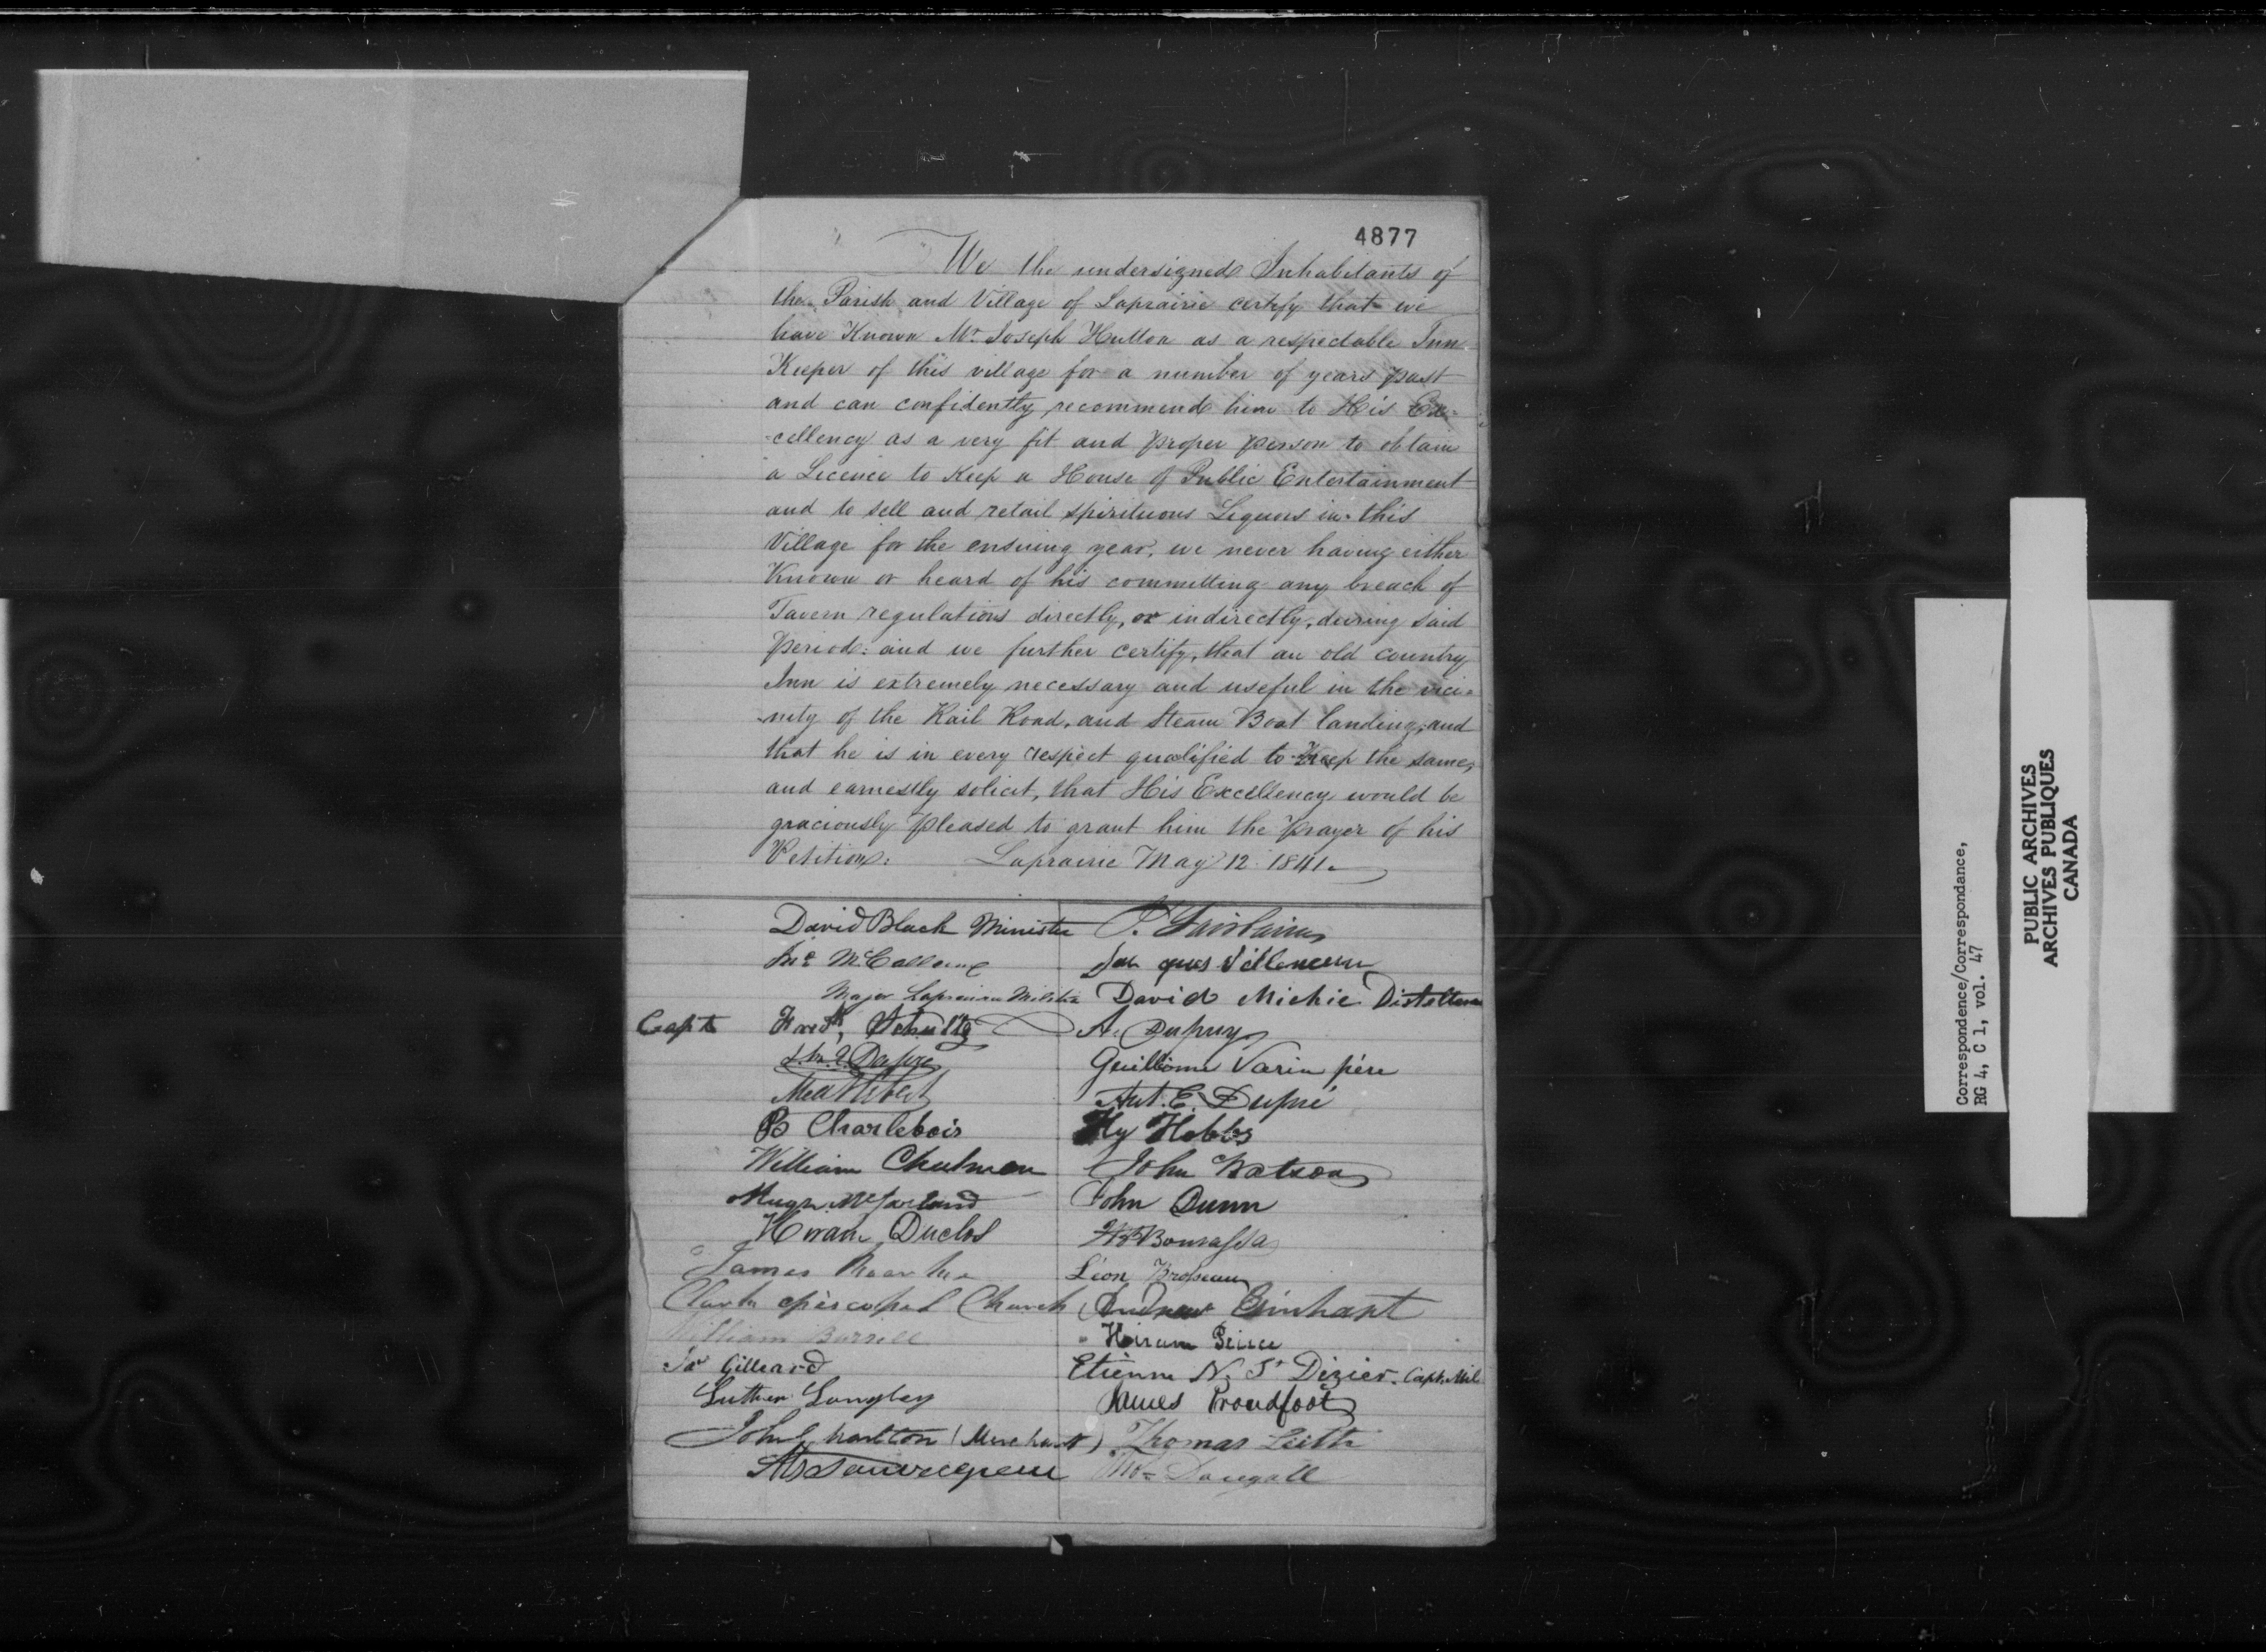 4877
We the undersigned Inhabitants of
the Parish and Village of Laprairie certify that we
have Known Mr. Joseph Hutton as a respectable Inn
Keeper of this village for a number of years past
and can confidently recommend him to His Ex=
=cellency as a very fit and proper person to obtain
a Licence to Keep a House of Public Entertainment
and to sell and retail spirituous Liquors in this
Village for the ensuing year, we never having either
Known or heard of his committing any breach of
Tavern regulations directly, or indirectly, during said
period: and we further certify, that an old country
Inn is extremely necessary and useful in the vici=
=nity of the Rail Road, and Steam Boat landing, and
that he is in every respect qualified to Keep the same,
and earnestly solicit, that His Excellency would be
graciously pleased to grant him the prayer of his
Petition: Laprairie May 12 1841
David Black Minister
Major Laprairie Militia
Capt Fredk,
B Charlebois
William
Hugh McFarland
Hiram Duclos
James
Clark episcopal Church
William Burrell
Jas Gilleard
Luther Langley
John Charlton (Merchant)
David Michie
A. Dupuy
Guillome Varin père
Ant. E. Dupré
Hy Hobbs
John Watson
John Dunn
Bourassa
Léon Brosseau
Andrew
Hiram Peirce
Etienne N. St Dizier. Capt. Mil
James Proudfoot
Thomas Leith
Thos Dougall
Correspondence/Correspondance,
RG 4, C 1, vol. 47
PUBLIC ARCHIVES
ARCHIVES PUBLIQUES
CANADA